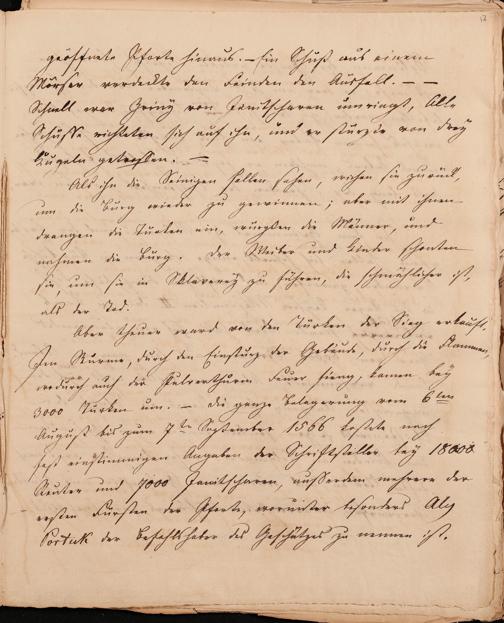 52
geöffnete Pforte hinaus. – Ein Schuß aus einem
Mörser verdeckte den Feinden den Ausfall. – –
Schnell war Zriny von Janitscharen umringt, Alle
Schüsse richteten sich auf ihn, und er stürzte von drey
Kugeln getroffen. –
Als ihn die Seinigen fallen sahen, wichen sie zurück,
um die Burg wieder zu gewinnen; aber mit ihnen
drangen die Türken ein, würgten die Männer, und
nahmen die Burg. Der Weiber und Kinder schonten
sie, um sie in Sklaverey zu führen, die schmählicher ist,
als der Tod.
Aber theuer ward von den Türken der Sieg erkauft.
Im Sturme, durch den Einsturz der Gebäude, durch die Flammen,
wodurch auch der Pulverthurm Feuer fieng, kamen bey
3000 Türken um. – Die ganze Belagerung vom 6ten
August bis zum 7ten September 1566 kostete nach
fast einstimmigen Angaben der Schriftsteller bey 18000
Reuter und 7000 Janitscharen, außerdem mehrere der
ersten Fürsten der Pforte, worunter besonders Aly
Portuk der Befehlshaber des Geschützes zu nennen ist.